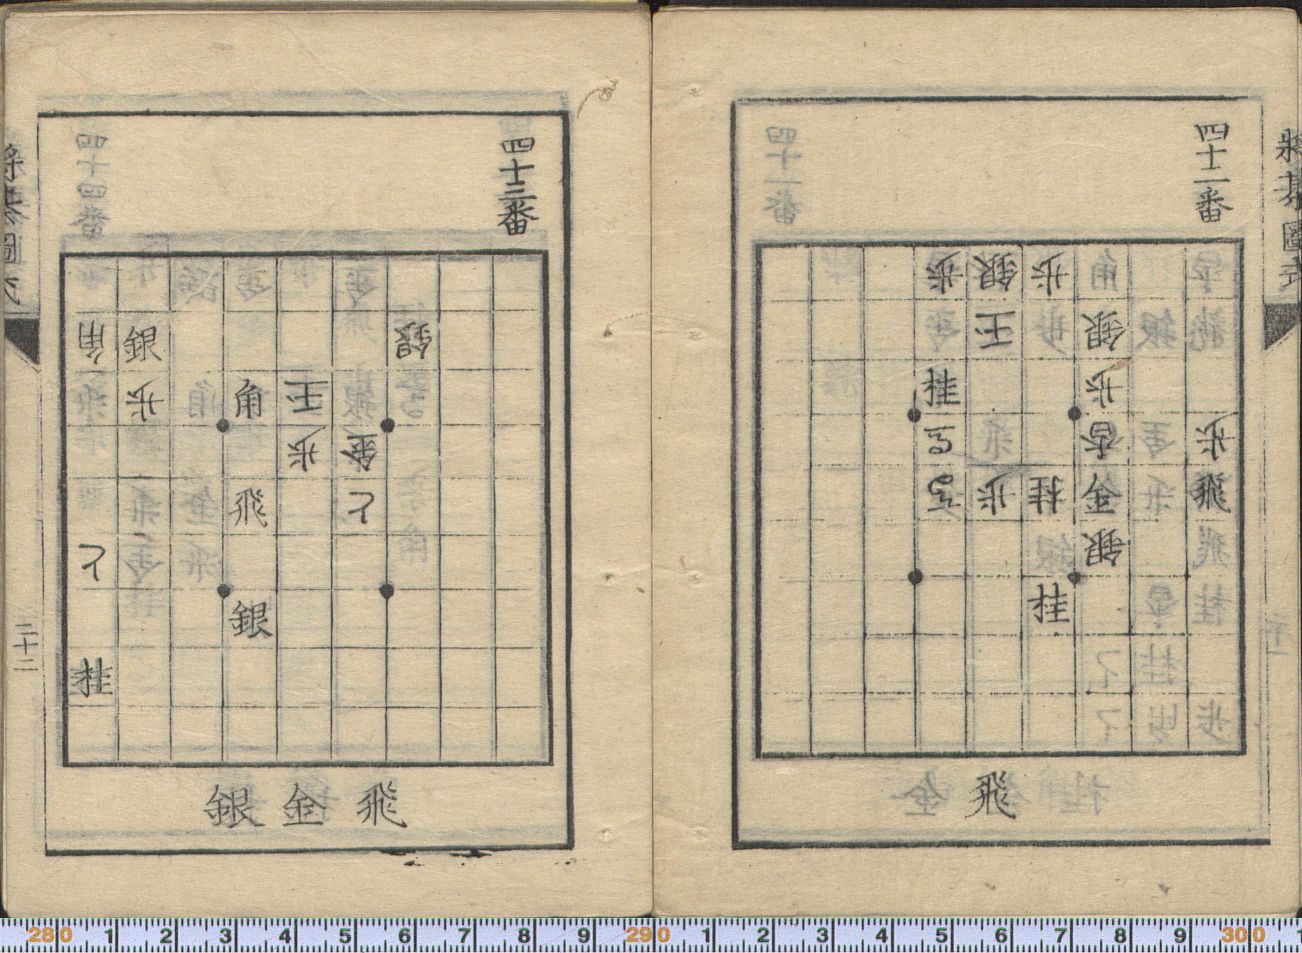 将棊圖式
四十二番
歩 銀 歩
王 銀
桂 歩
香 歩
歩 桂 金 飛
銀
桂
飛
四十三番
角 銀 銀
歩 角 王
歩 金
飛 と
と
銀
桂
飛金銀
将棊圖式
二十二
280 1 2 3 4 5 6 7 8 9 290 1 2 3 4 5 6 7 8 9 300 1